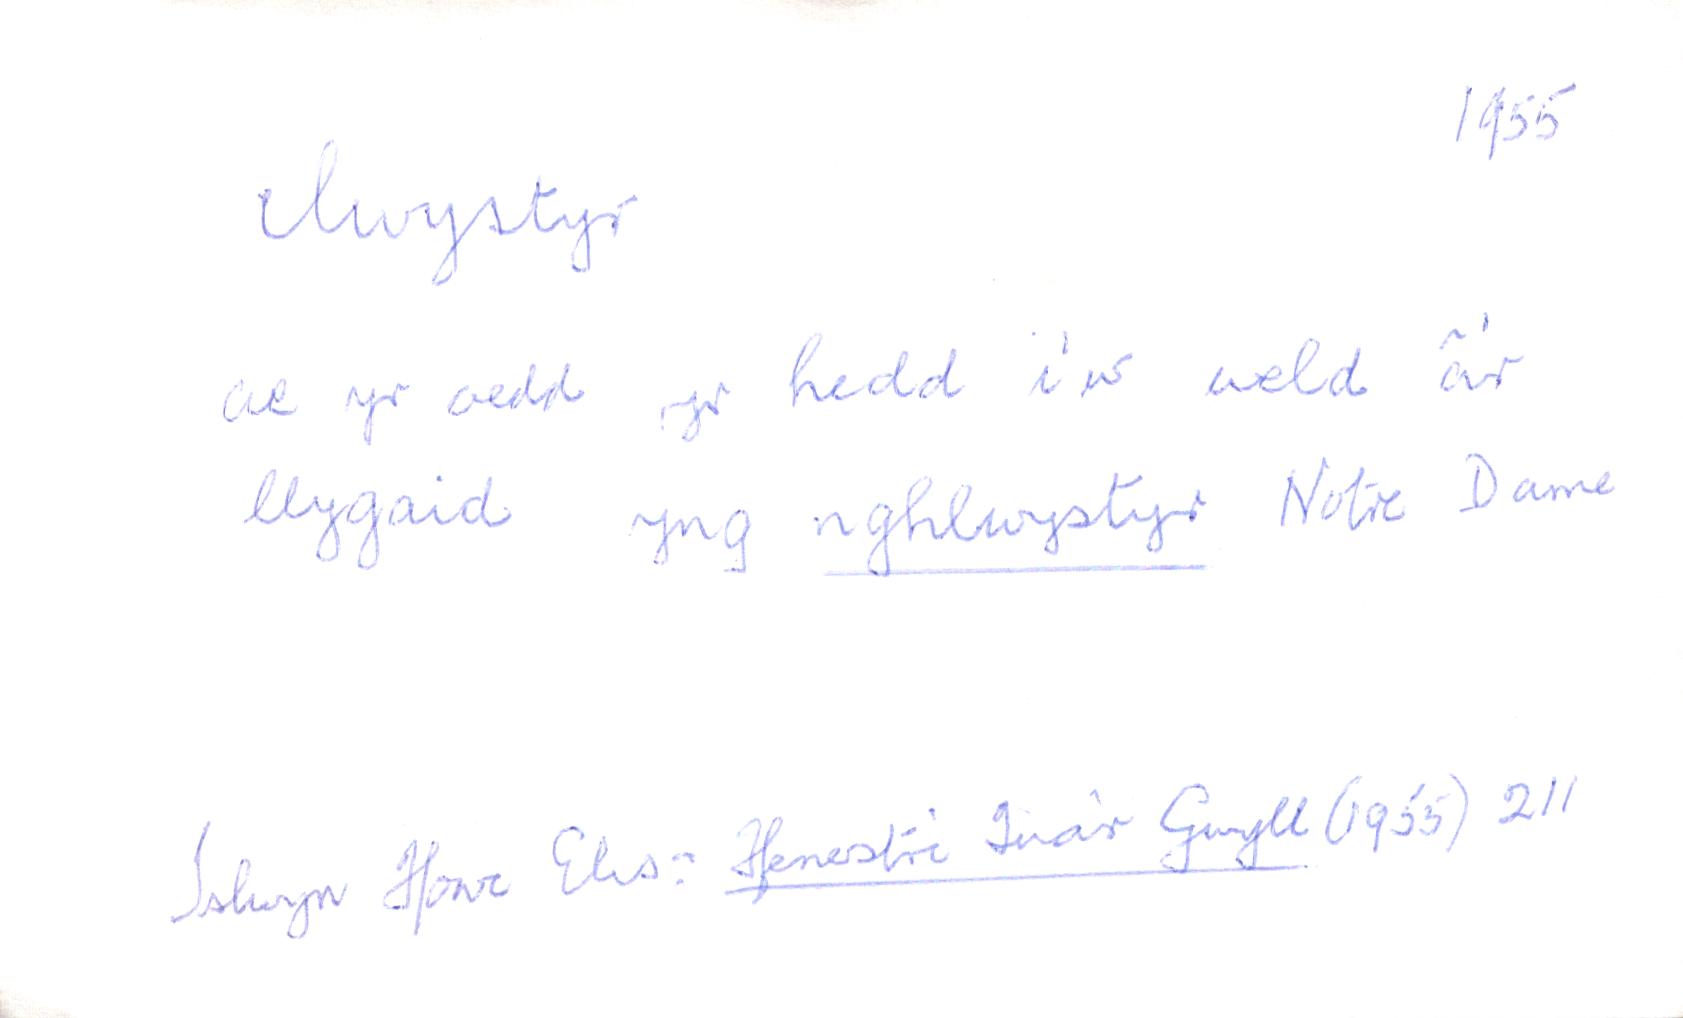 1955
clwystyr
ac yr oedd yr hedd i'w weld â'r
llygaid yng nghlwystyr Notre Dame
Islwyn Ffowc Elis: Ffenestri Tua'r Gwyll (1955) 211